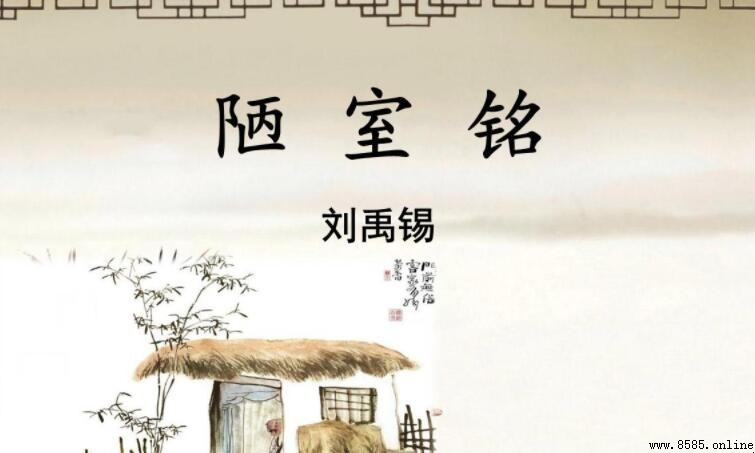 陋室铭
刘禹锡
www.8585.online